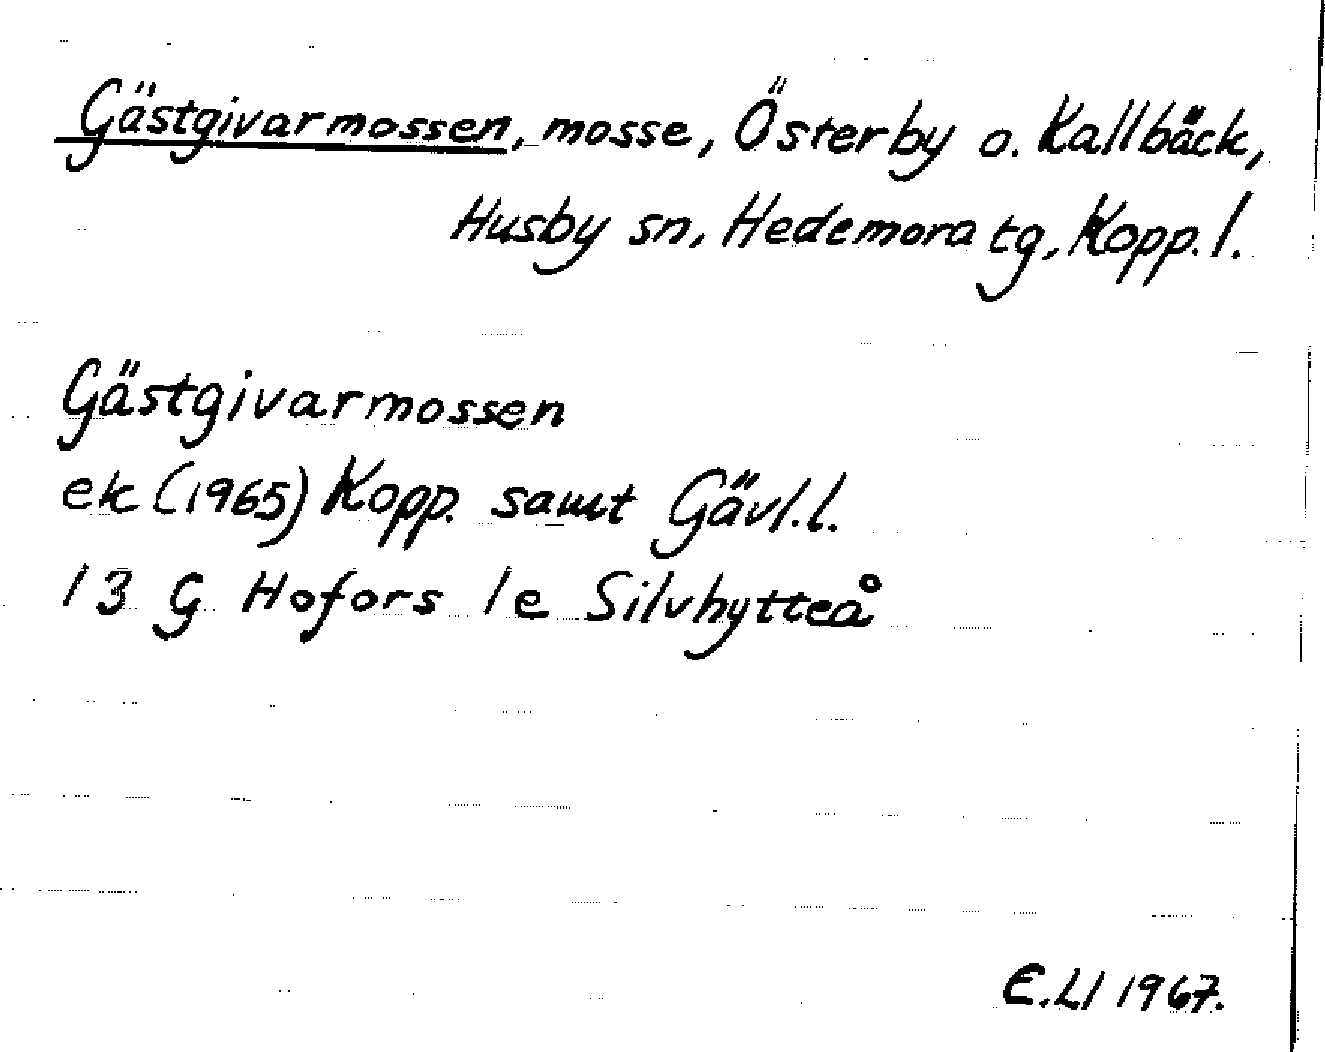 Gästgivarmossen, mosse, Österby o. Kallbäck,
Husby sn, Hedemora tg, Kopp. l.
Gästgivarmossen
ek (1965) Kopp. samt Gävl. l.
13 G Hofors 1e Silvhytteå
E.Ll 1967.